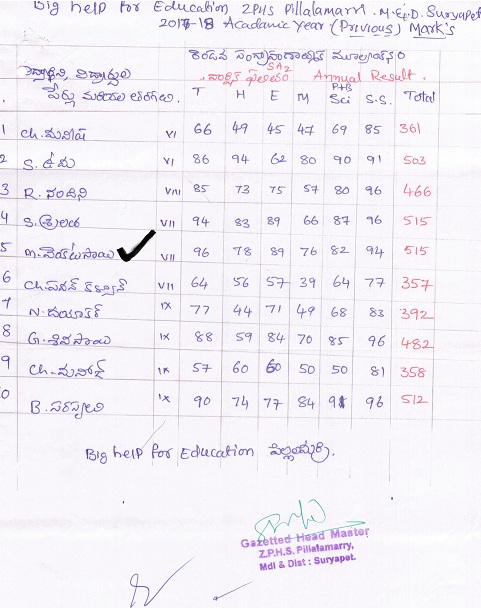 Big help For Education ZPHS Pillalamarri. M&D. Suryapet
2017-18 Acadamic year (Previous) Mark's
SA2
వార్షిక ఫలితం Annual Result.
పేర్లు మరియు తరగతి. T H E M P+B Sci S.S. Total
1 Ch. మనీష VI 66 49 45 47 69 85 361
2 S. ఉమ VI 86 94 62 80 90 91 503
3 R. నందిని VIII 85 73 75 57 80 96 466
4 S. శ్రీలత VII 94 83 89 66 87 96 515
5 M. VII 96 78 89 76 82 94 515
6 Ch. పవన్ కళ్యాణ్ VII 64 56 57 39 64 77 357
7 N. దయాకర్ IX 77 44 71 49 68 83 392
8 G. శివసాయి IX 88 59 84 70 85 96 482
9 Ch. మనోజ్ IX 57 60 60 50 50 81 358
10 B. IX 90 74 77 84 91 96 512
Big help For Education పిల్లలమర్రి.
Gazetted Head Master
Z.P.H.S. Pillalamarry,
Mdl & Dist : Suryapet.